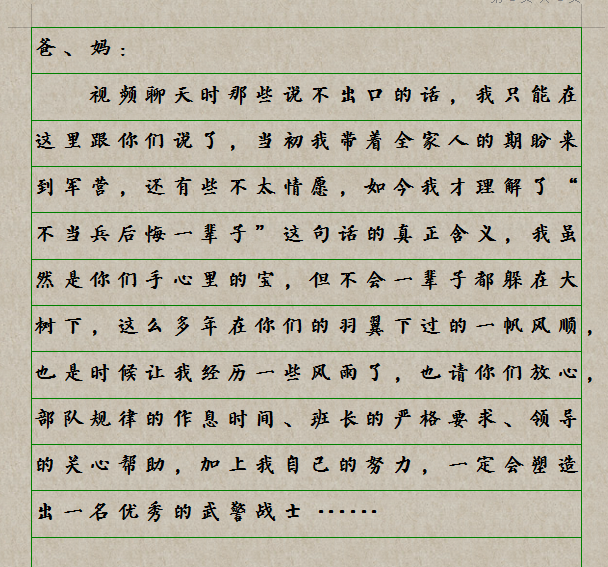 爸、妈:
视频聊天时那些说不出口的话，我只能在
这里跟你们说了，当初我带着全家人的期盼来
到军营，还有些不太情愿，如今我才理解了“
不当兵后悔一辈子”这句话的真正含义，我虽
然是你们手心里的宝，但不会一辈子都躲在大
树下，这么多年在你们的羽翼下过的一帆风顺，
也是时候让我经历一些风雨了，也请你们放心，
部队规律的作息时间、班长的严格要求、领导
的关心帮助，加上我自己的努力，一定会塑造
出一名优秀的武警战士……